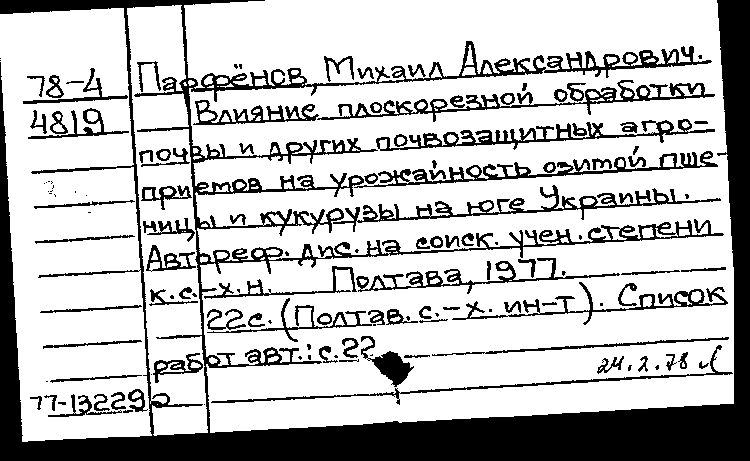 78-4 Парфёнов, Михаил Александрович.
4819 Влияние плоскорезной обработки
почвы и других почвозащитных агро=
приемов на урожайность озимой пше-
ницы и кукурузы на юге Украины.
Автореф. дис. на соиск. учен. степени
к.с.-х.н. Полтава, 1977.
22с. (Полтав. с.-х. ин-т). Список
работ авт.: с.22
24.2.78
77-13229о